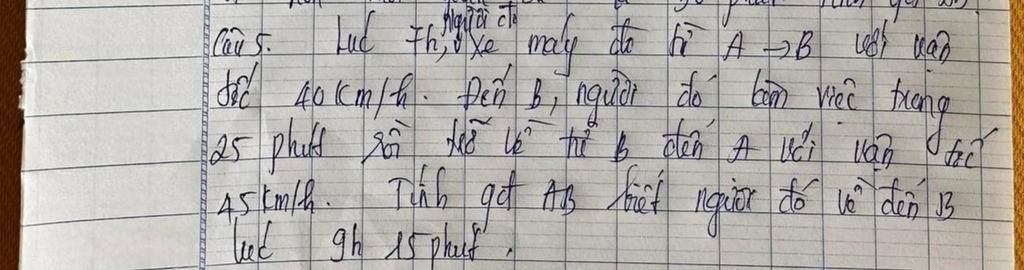 người đi
Câu 5. Lúc 7h, xe máy đó từ A → B với vận
tốc 40 km/h. Đến B, người đó làm việc trong
25 phút rồi trở về từ B đến A với vận tốc
45 km/h. Tính qđ AB biết người đó về đến B
lúc 9h 15 phút.